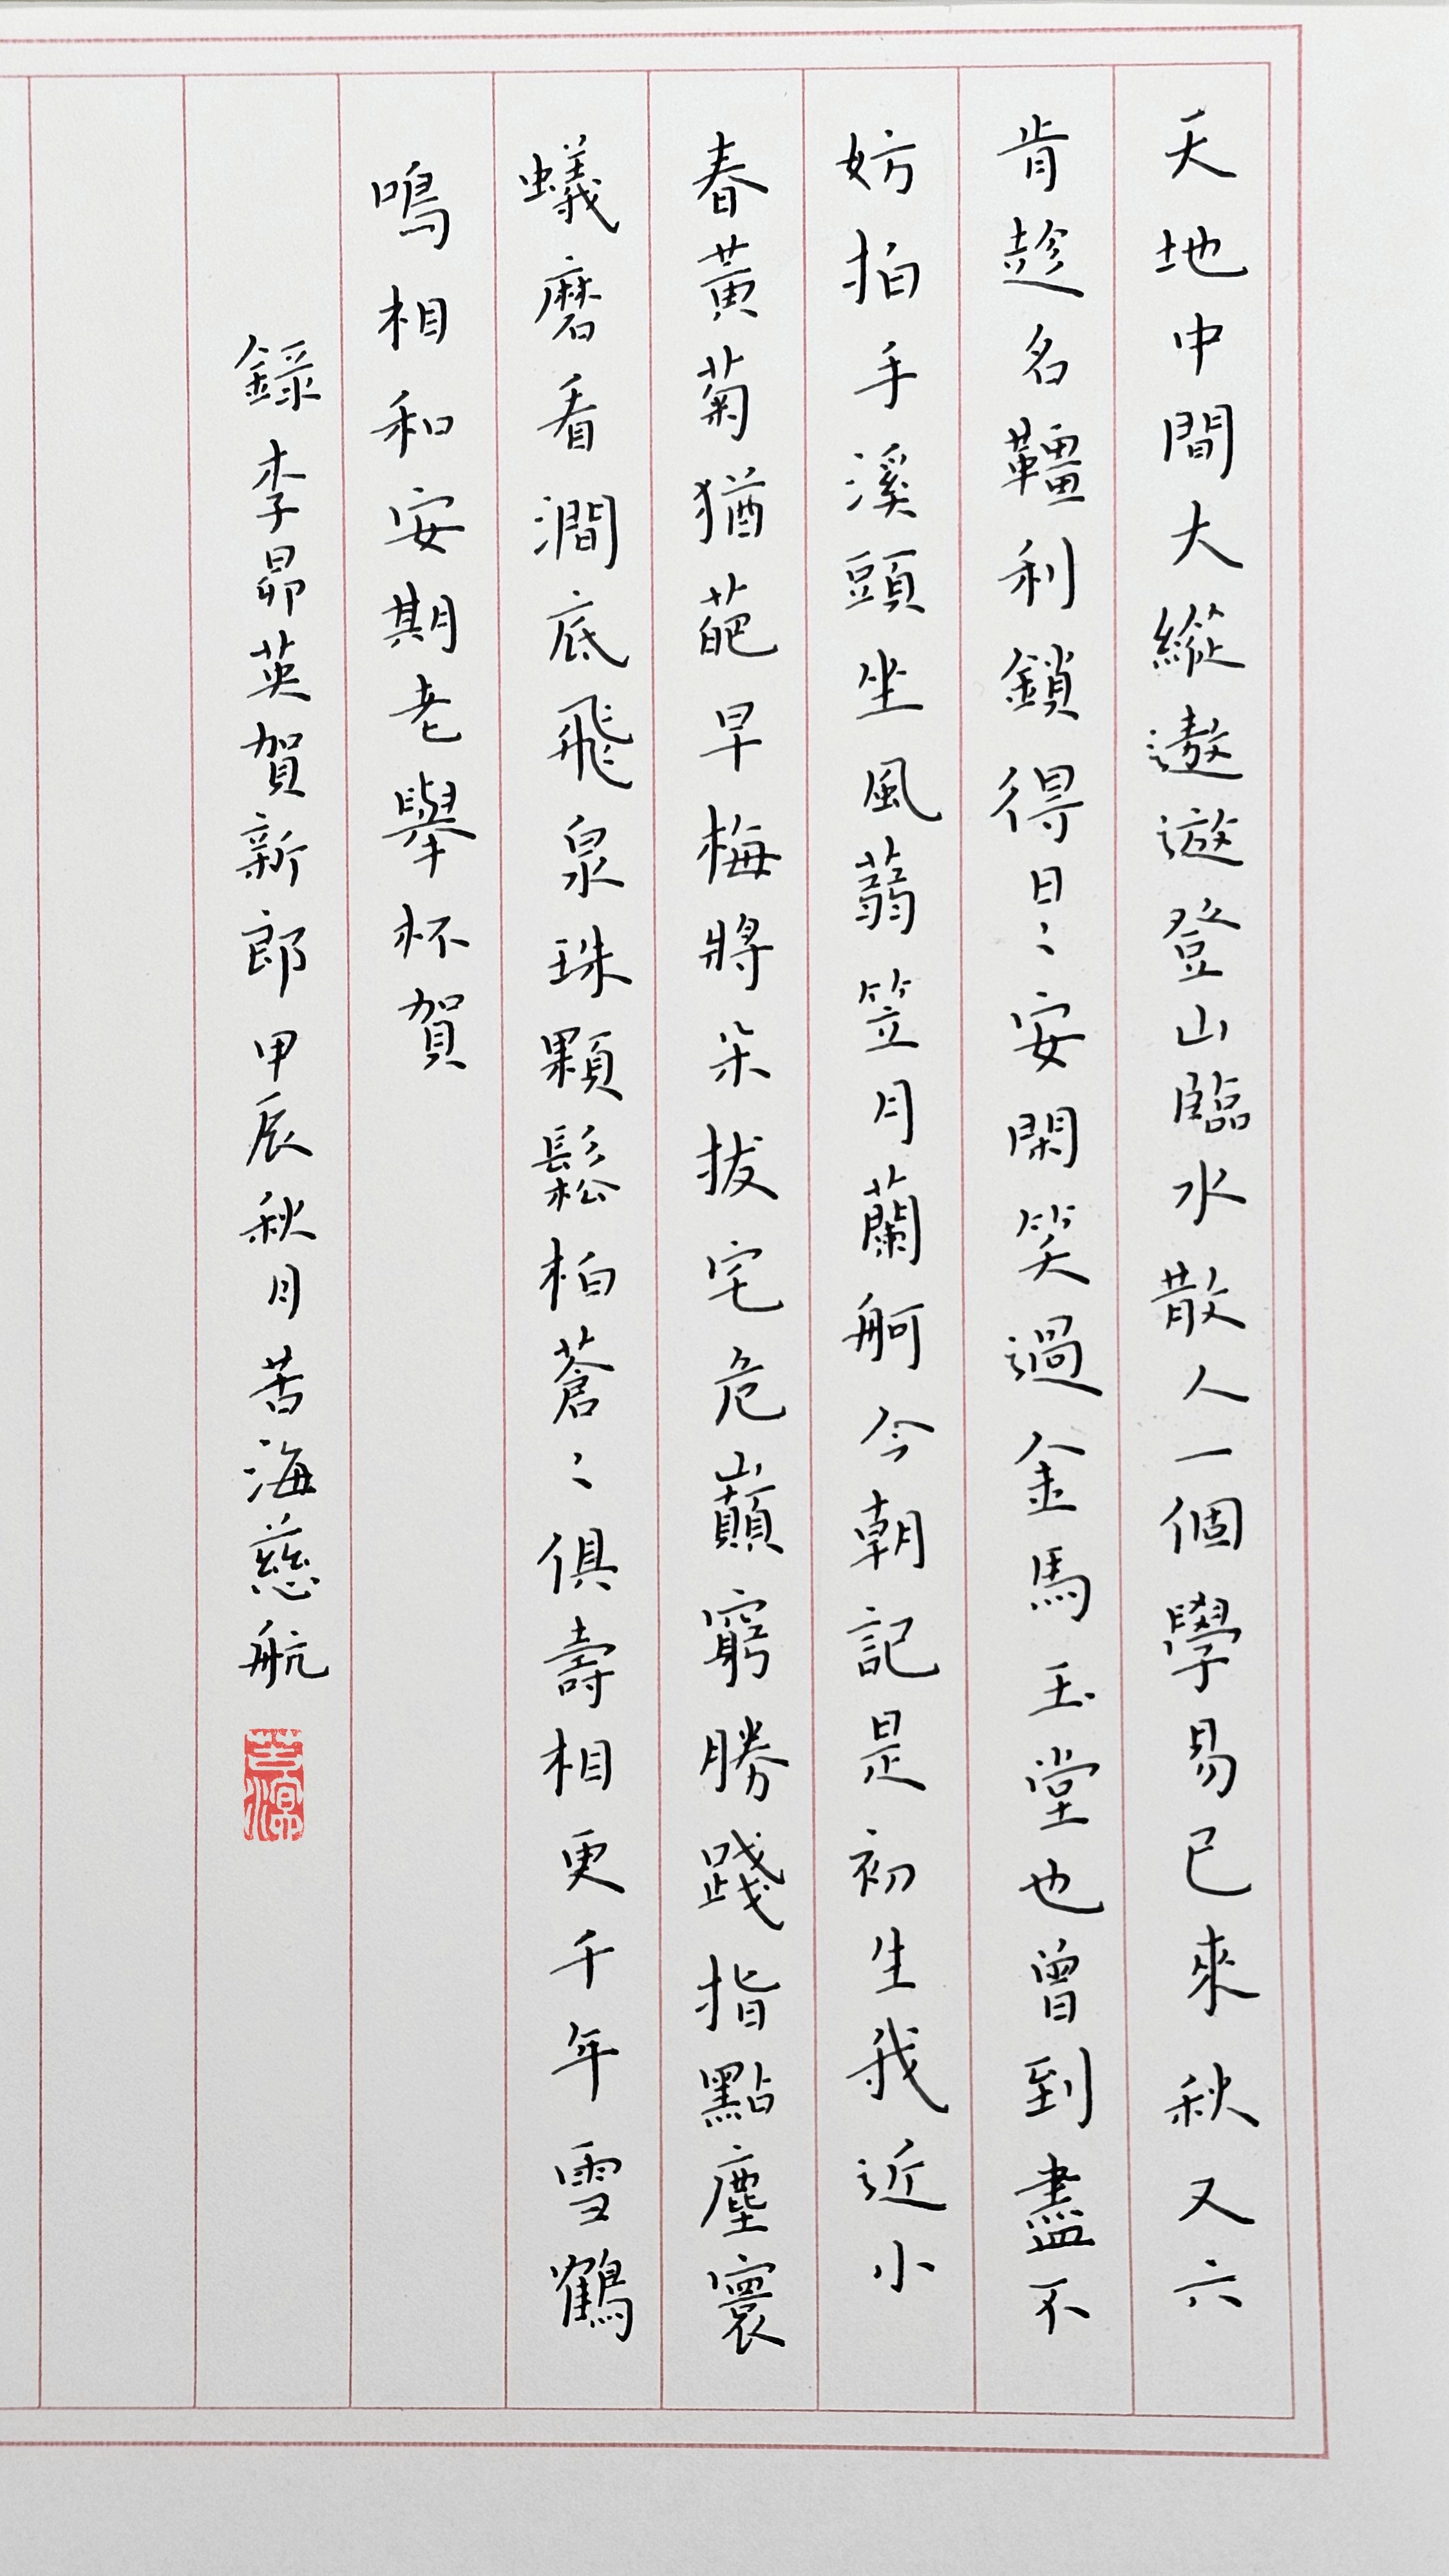 天地中間大縱遨遊登山臨水散人一個學易已來秋又六
肯趁名韁利鎖得日〻安閑笑過金馬玉堂也曾到盡不
妨拍手溪頭坐風蒻笠月蘭舸今朝記是初生我近小
春黃菊猶葩早梅將朵拔宅危巔窮勝踐指點塵寰
蟻磨看澗底飛泉珠顆鬆柏蒼〻俱壽相更千年雪鶴
鳴相和安期老舉杯賀
錄李昴英賀新郎甲辰秋月苦海慈航